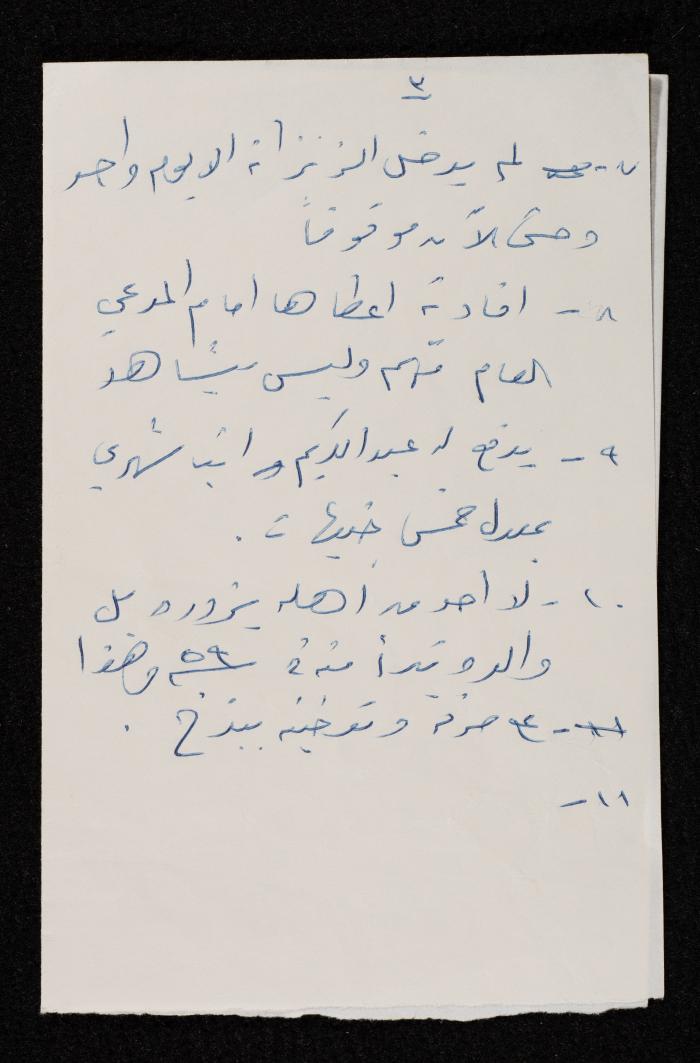 ٣
٧- لم يدخل الزنزانة الا يوم واحد
وحتى الآن موقوفاً
٨- افادته اعطاها امام المدعي
العام متهم وليس شاهد
٩- يدفع له عبد الكريم راتب شهري
بمعدل خمس جنيهات .
١٠- لا احد من اهله يزوره بل
والده تبرأ منه وهذا
صرفه وتدخينه ببذخ .
١١-